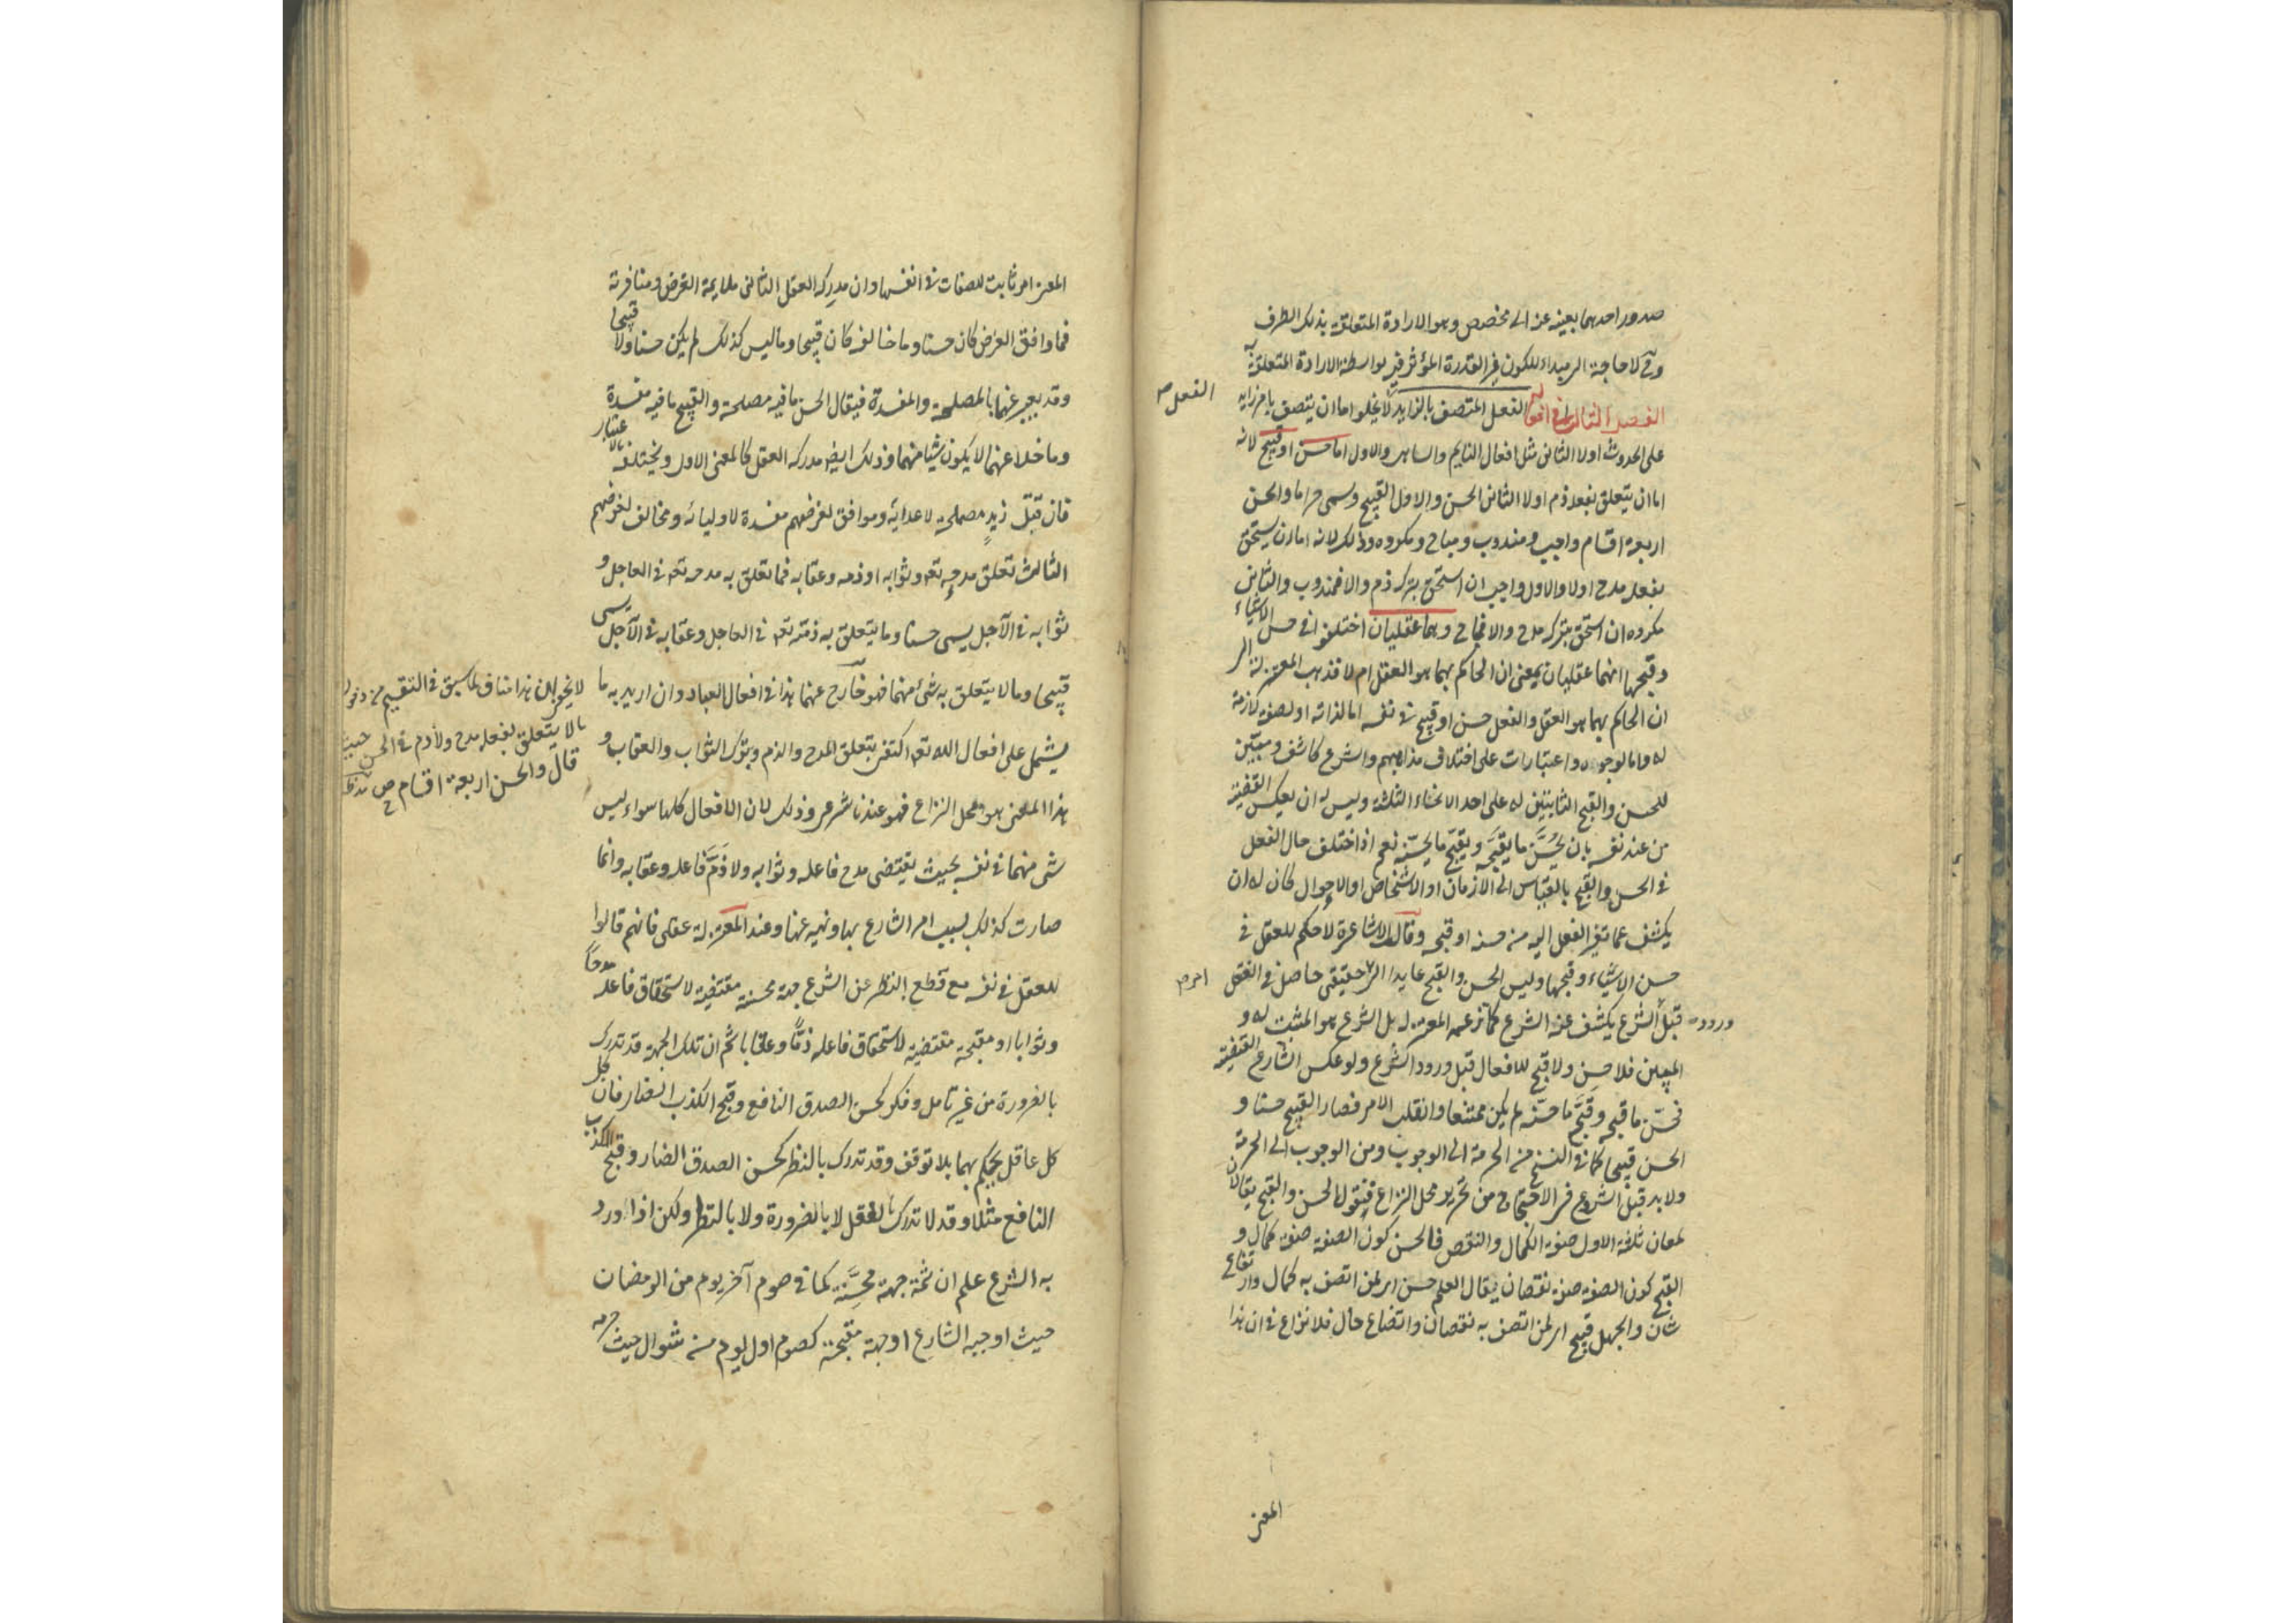 صدور احدهما بعينه عنه الى مخصص وهو الارادة المتعلقة بذلك الطرف
وح لا حاجة الى مبداء للكون فى القدرة المؤثر فيه بواسطة الارادة المتعلقة به
الفصل الثالث فى افعاله الفعل المتصف بالزايد لا يخلوا ما ان يتصف بامر زايد
الفعل
على الحدوث اولا الثانى مثل افعال النايم والساهى والاول اما حسن او قبيح لانه
اما ان يتعلق بفعله ذم اولا الثانى الحسن والاول القبيح ويسمى حراما والحسن
اربعة اقسام واجب ومندوب ومباح ومكروه وذلك لانه اما ان يستحق
بفعله مدح اولا والاول واجب ان استحق بتركه ذم والا فمندوب والثانى
مكروه ان استحق بتركه مدح والا فمباح وهما عقليان اختلفوا فى حسن الاشياء
وقبحها انهما عقليان بمعنى ان الحاكم بهما هو العقل ام لا فذهب المعتزلة الى
ان الحاكم بهما هو العقل والفعل حسن او قبيح فى نفسه اما لذاته او لصفة لازمة
له واما لوجوه واعتبارات على اختلاف مذاهبهم والشرع كاشف ومبين
للحسن والقبح الثابتين له على احد الانحاء الثلثة وليس له ان يعكس القضية
من عند نفسه بان يحسن ما يقبحه ويقبح ما يحسنه نعم اذا اختلف حال الفعل
فى الحسن والقبح بالقياس الى الازمان او الاشخاص او الاحوال كان له ان
يكشف عما تغير الفعل اليه من حسنه او قبحه وقالت الاشاعرة لا حكم للعقل فى
حسن الاشياء وقبحها وليس الحسن والقبح عايدا الى حقيقى حاصل فى الفعل
امر
قبل الشرع يكشف عنه الشرع كما تزعمه المعتزلة بل الشرع هو المثبت له و
ورود
المبين فلا حسن ولا قبح للافعال قبل ورود الشرع ولو عكس الشارع القضية
فحسن ما قبحه وقبح ما حسنه لم يكن ممتنعا وانقلب الامر فصار القبيح حسنا و
الحسن قبيحا كما فى النسخ من الحرمة الى الوجوب ومن الوجوب الى الحرمة
ولا بد قبل الشروع فى الاحتجاج من تحرير محل النزاع فنقول الحسن والقبح يقالان
لمعان ثلثة الاول صفة الكمال والنقص فالحسن كون الصفة صفة كمال و
القبح كون الصفة صفة نقصان يقال العلم حسن اى لمن اتصف به كمال وارتفاع
شان والجهل قبيح اى لمن اتصف به نقصان واتضاع حال فلا نزاع فى ان هذا
المعنى
المعنى امر ثابت للصفات فى انفسها وان مدركه العقل الثانى ملايمة الغرض ومنافرته
فما وافق الغرض كان حسنا وما خالفه كان قبيحا وما ليس كذلك لم يكن حسنا ولا قبيحا
وقد يعبر عنهما بالمصلحة والمفسدة فيقال الحسن ما فيه مصلحة والقبيح ما فيه مفسدة
وما خلا عنهما لا يكون شيئا منهما وذلك ايضا مدركه العقل كالمعنى الاول ويختلف بالاعتبار
فان قتل زيد مصلحة لاعدايه وموافق لغرضهم مفسدة لاوليائه ومخالف لغرضهم
الثالث تعلق مدحه تعه وثوابه او ذمه وعقابه فما تعلق به مدحه تعه فى العاجل و
ثوابه فى الآجل يسمى حسنا وما يتعلق به ذمته تعه فى العاجل وعقابه فى الآجل يسمى
قبيحا وما لا يتعلق به شئ منهما فهو خارج عنهما هذا فى افعال العباد وان اريد به ما
يشمل على افعال الله تعه اكتفى بتعلق المدح والذم وبترك الثواب والعقاب و
هذا المعنى هو محل النزاع فهو عندنا شرعى وذلك لان الافعال كلها سواء ليس
شى منهما فى نفسه بحيث يقتضى مدح فاعله وثوابه ولا ذم فاعله وعقابه وانما
صارت كذلك بسبب امر الشارع بها ونهيه عنها وعند المعتزلة عقلى فانهم قالوا
للعقل فى نفسه مع قطع النظر عن الشرع جهة محسنة مقتضية لاستحقاق فاعله مدحا
وثوابا او مقبحة مقتضية لاستحقاق فاعله ذما وعقابا ثم ان تلك الجهة قد تدرك
بالضرورة من غير تامل وفكر كحسن الصدق النافع وقبح الكذب الضار فان كل
كل عاقل يحكم بهما بلا توقف وقد تدرك بالنظر كحسن الصدق الضار وقبح الكذب
النافع مثلا وقد لا تدرك بالعقل لا بالضرورة ولا بالنظر ولكن اذا ورد
به الشرع علم ان ثمة جهة محسنة كما فى صوم آخر يوم من الرمضان
حيث اوجبه الشارع او جهة مقبحة كصوم اول يوم من شوال حيث حرمه
لا يخفى ان هذا مناف لما سبق فى التقسيم من دخول
ما لا يتعلق بفعله مدح ولا ذم فى الحسن حيث
قال والحسن اربعة اقسام